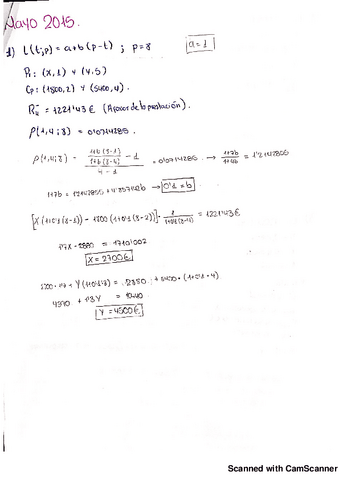 Mayo 2015.
1) L(t;p) = a+b(p-t) ; p=8 a=1
Pr: (X,1) y (Y,5)
Cp: (1800,2) y (5400,4).
R₄⁻ = 1221'43€ (A favor de la prestación).
ρ(1,4;8) = 0'0714285.
ρ(1,4;8) = (1+b(8-1)/1+b(8-4) - 1)/(4-1) = 0'0714285 → 1+7b/1+4b = 1'2142855
1+7b = 1'2142855 + 4'857142b → 0'1 = b
[X(1+0'1(8-1)) - 1800(1+0'1(8-2))] · 1/1+0'1(8-4) = 1221'43€
1'7X - 2880 = 1710'002
X = 2700€
2700 · 1'7 + Y(1+0'1·3) = 2880 + 5400 · (1+0'1·4)
4590 + 1'3Y = 10440
Y = 4500€
Scanned with CamScanner